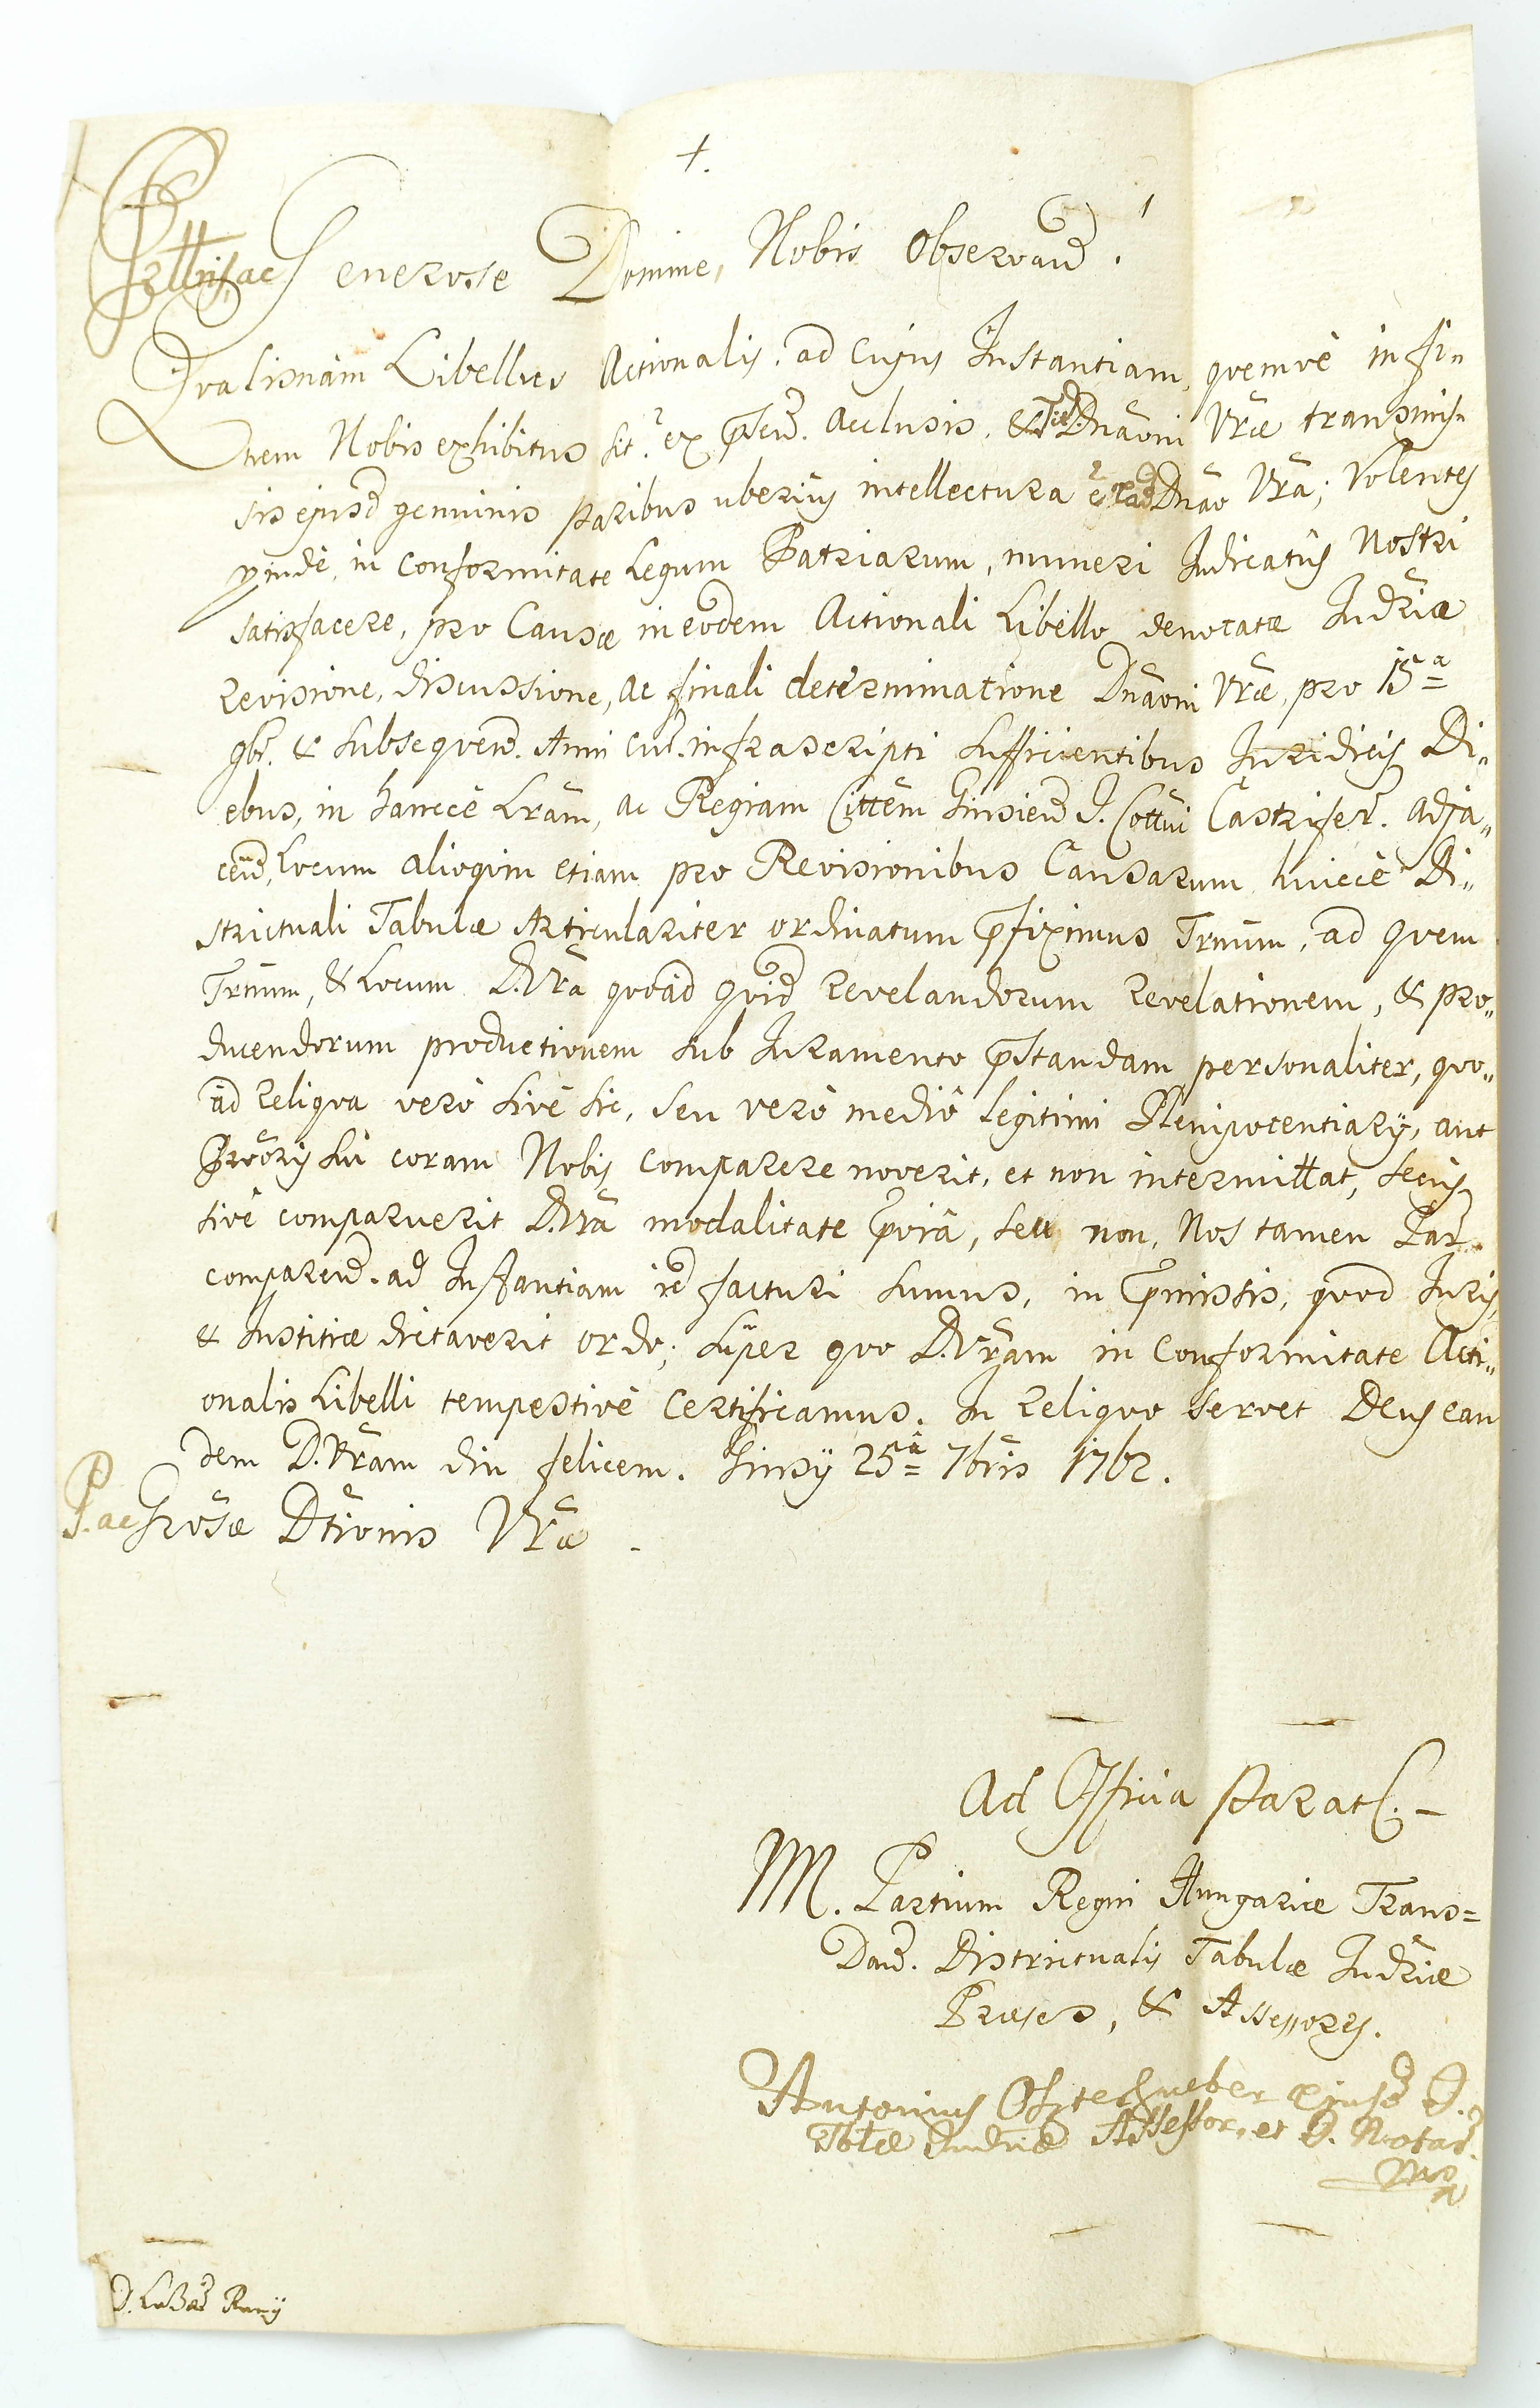 +.
Prttris, ac Generose Domine, Nobis Observand. !
Qvalisnam Libellus Actionalis, ad Cujus Instantiam, qvemvè in fi„
nem Nobis exhibitus sit? ex p̄sen. acclusis, Dnãoni Vrãe transmis„
sis ejusd genuinis Paribus uberiùs intellectura est Dnão Vrã; Volentes
proindè, in conformitate Legum Patriarum, muneri Judicatùs Nostri
satisfacere, pro Causæ in eodem Actionali Libello denotatæ Judriæ
revisione, discussione, ac finali determinatione Dnãoni Vrãe, pro 15ª
9br. & subseqven. Anni cur. infrascripti sufficientibus Juridicis Di„
ebus, in hancce Lram, ac Regiam Cittem Ginsien I. Cottui Castrifer. adja„
cen, Locum alioqvin etiam pro Revisionibus Causarum huicce Di„
strictuali Tabulæ Articulariter ordinatum p̄fiximus Trnum, ad qvem
Trnum, & Locum D. Vrã qvoad qvid revelandorum revelationem, & pro„
ducendorum productionem sub Juramento p̄standam personaliter, qvo„
ad reliqva verò sivè sic, seu verò mediô legitimi Plenipotentiarÿ, aut
Prõoris sui coram Nobis comparere noverit, et non intermittat, secus
sivè comparuerit D. Vrã modalitate p̄via, seu non, Nos tamen Par.
comparen. ad Instantiam id facturi sumus, in p̄missis, qvod Juris,
& Justitiæ dictaverit ordo; super qvo D. Vrãm in Conformitate Acti„
onalis Libelli tempestivè Certificamus. In reliqvo servet Deus ean
dem D. Vrãm diu felicem. Ginsÿ 25â 7bris 1762.
P. ac Grõsæ Dtionis Vrãe.
Ad Officia Parat.
M. Partium Regni Hungariæ Trans=
Dan. Districtualis Tabulæ Judriæ
Præses, & Assessores.
Antonius ejusd D.
Tblæ Judriæ Assessor, et D. Notar.
mp